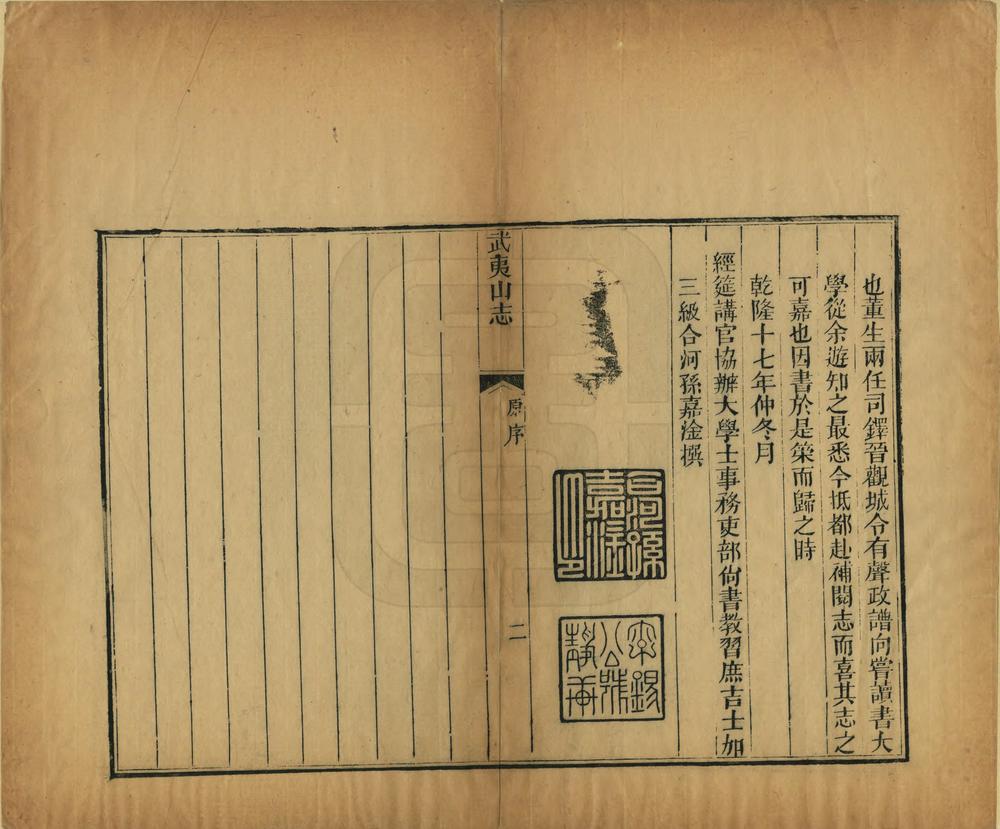 也董生兩任司鐸晉觀城令有聲政譜向嘗讀書大
學從余遊知之最悉今抵都赴補閱志而喜其志之
可嘉也因書於是築而歸之時
乾隆十七年仲冬月
經筵講官協辦大學士事務吏部尙書教習庶吉士加
三級合河孫嘉淦撰
合河孫
嘉淦
印
公
武夷山志
原序
二